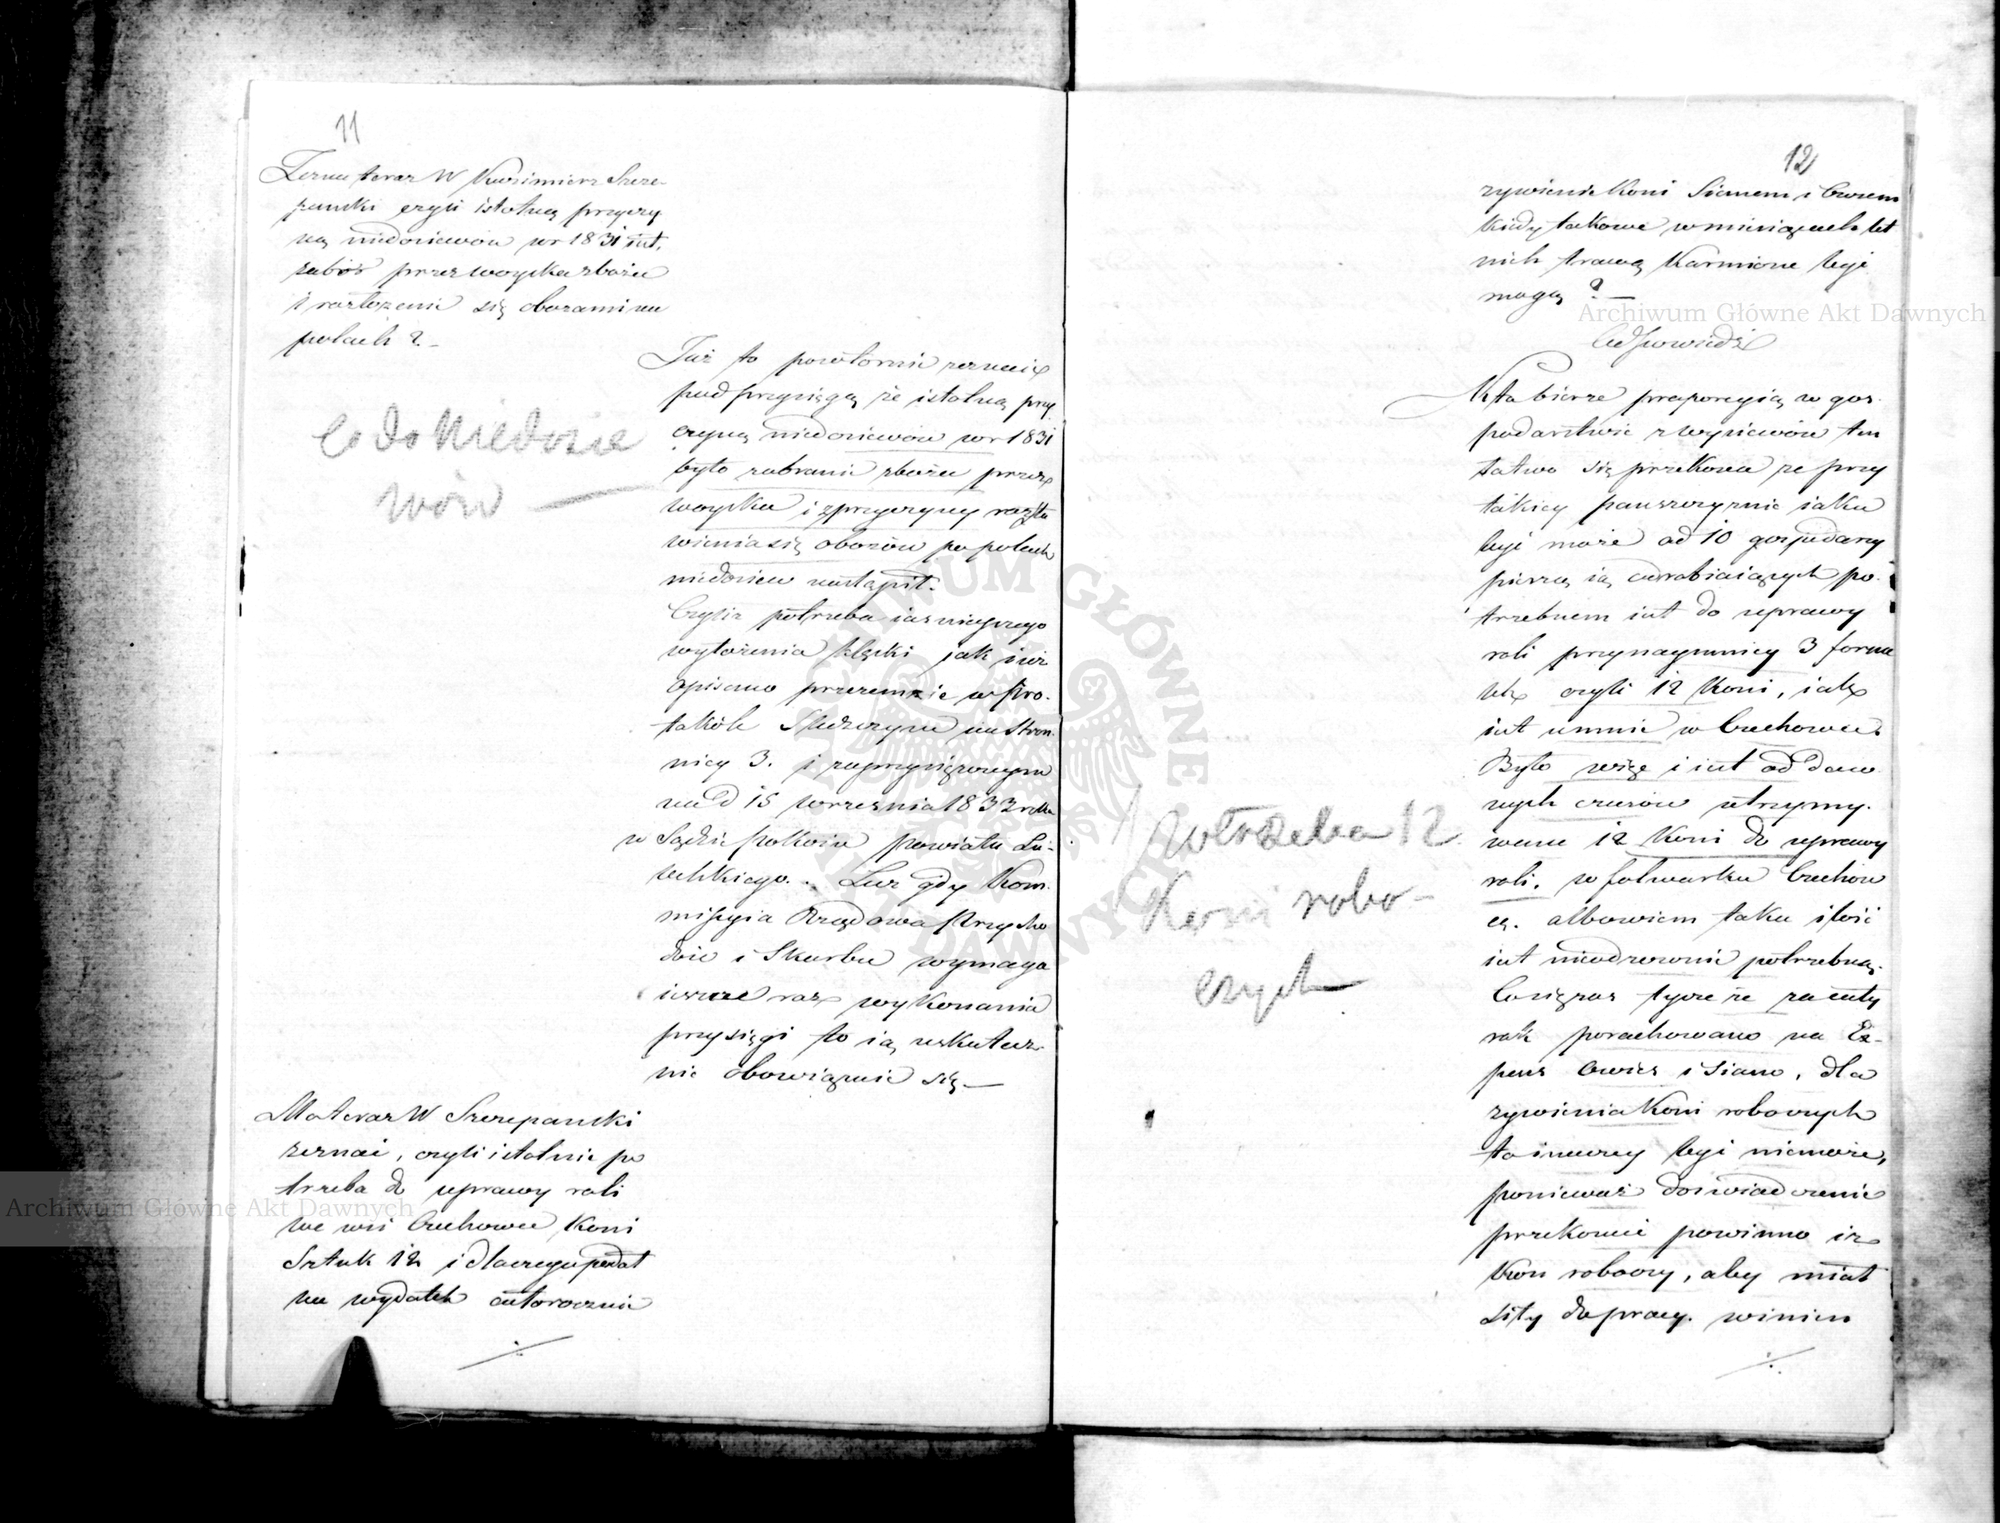 11
Zezna teraz W Kazimierz Szcze-
pański czyli istotną przyczy
ną niedosiewów w r 1831 iest.
zabór przez woyska zboża
i rozłożenie się obozami na
polach ?
Już to powtórnie zeznaię
pod przysięgą że istotną przy
czyną niedosiewów w r 1831
było zabranie zboża przez
woyska i z przyczyny rozsta
wienia się obozów po polach
niedosiew nastąpił.
Co do Niedosie
wów —
Czyliż potrzeba iaśnieyszego
wyłożenia klęski jak iuż
opisano przezemnie w Pro-
tokóle Śledczym na stron-
nicy 3. i zaprzysiężonym
na d 15 września 1833 roku
w Sądzie Pokoiu Powiatu Lu-
belskiego. Lecz gdy Kom-
missyia Rządowa Przycho
dów i Skarbu wymaga
ieszcze raz wykonania
przysięgi to ią uskutecz-
nić obowiązuię się —
Ma teraz W Szczepański
zeznać, czyli istotnie po
trzeba do uprawy roli
we wsi Ciechowce Koni
Sztuk 12 i dlaczego podał
na wydatek całoroczni
12
żywienie Koni Sianem i Owsem
kiedy takowe w miesiącach let
nich trawą Karmione być
mogą ? —
Odpowiedź
Kto bierze proporcyią w gos-
podarstwie z wysiewów ten
łatwo się przekona że przy
takiey pańszczyznie iaka
być może od 10 gospodarzy
pieszą ią odrabiaiących po-
trzebnem iest do uprawy
roli przynaymniey 3 forna
lek czyli 12 Koni, iak
iest u mnie w Ciechowce.
Było więc i iest od daw
nych czasów utrzymy-
wane 12 Koni do uprawy
roli. w folwarku Ciechow
ce. albowiem taka ilość
iest nieodzownie potrzebną.
Potrzeba 12
Koni robo-
czych
Co się zaś tycze że za cały
rok porachowano na Ex-
pens Owies i Siano, dla
żywienia Koni roboczych
to inaczey być niemoże,
ponieważ doświadczenie
przekonać powinno iż
Koń roboczy, aby miał
siły do pracy. winien
Archiwum Główne Akt Dawnych
Archiwum Główne Akt Dawnych
ARCHIWUM GŁÓWNE AKT DAWNYCH